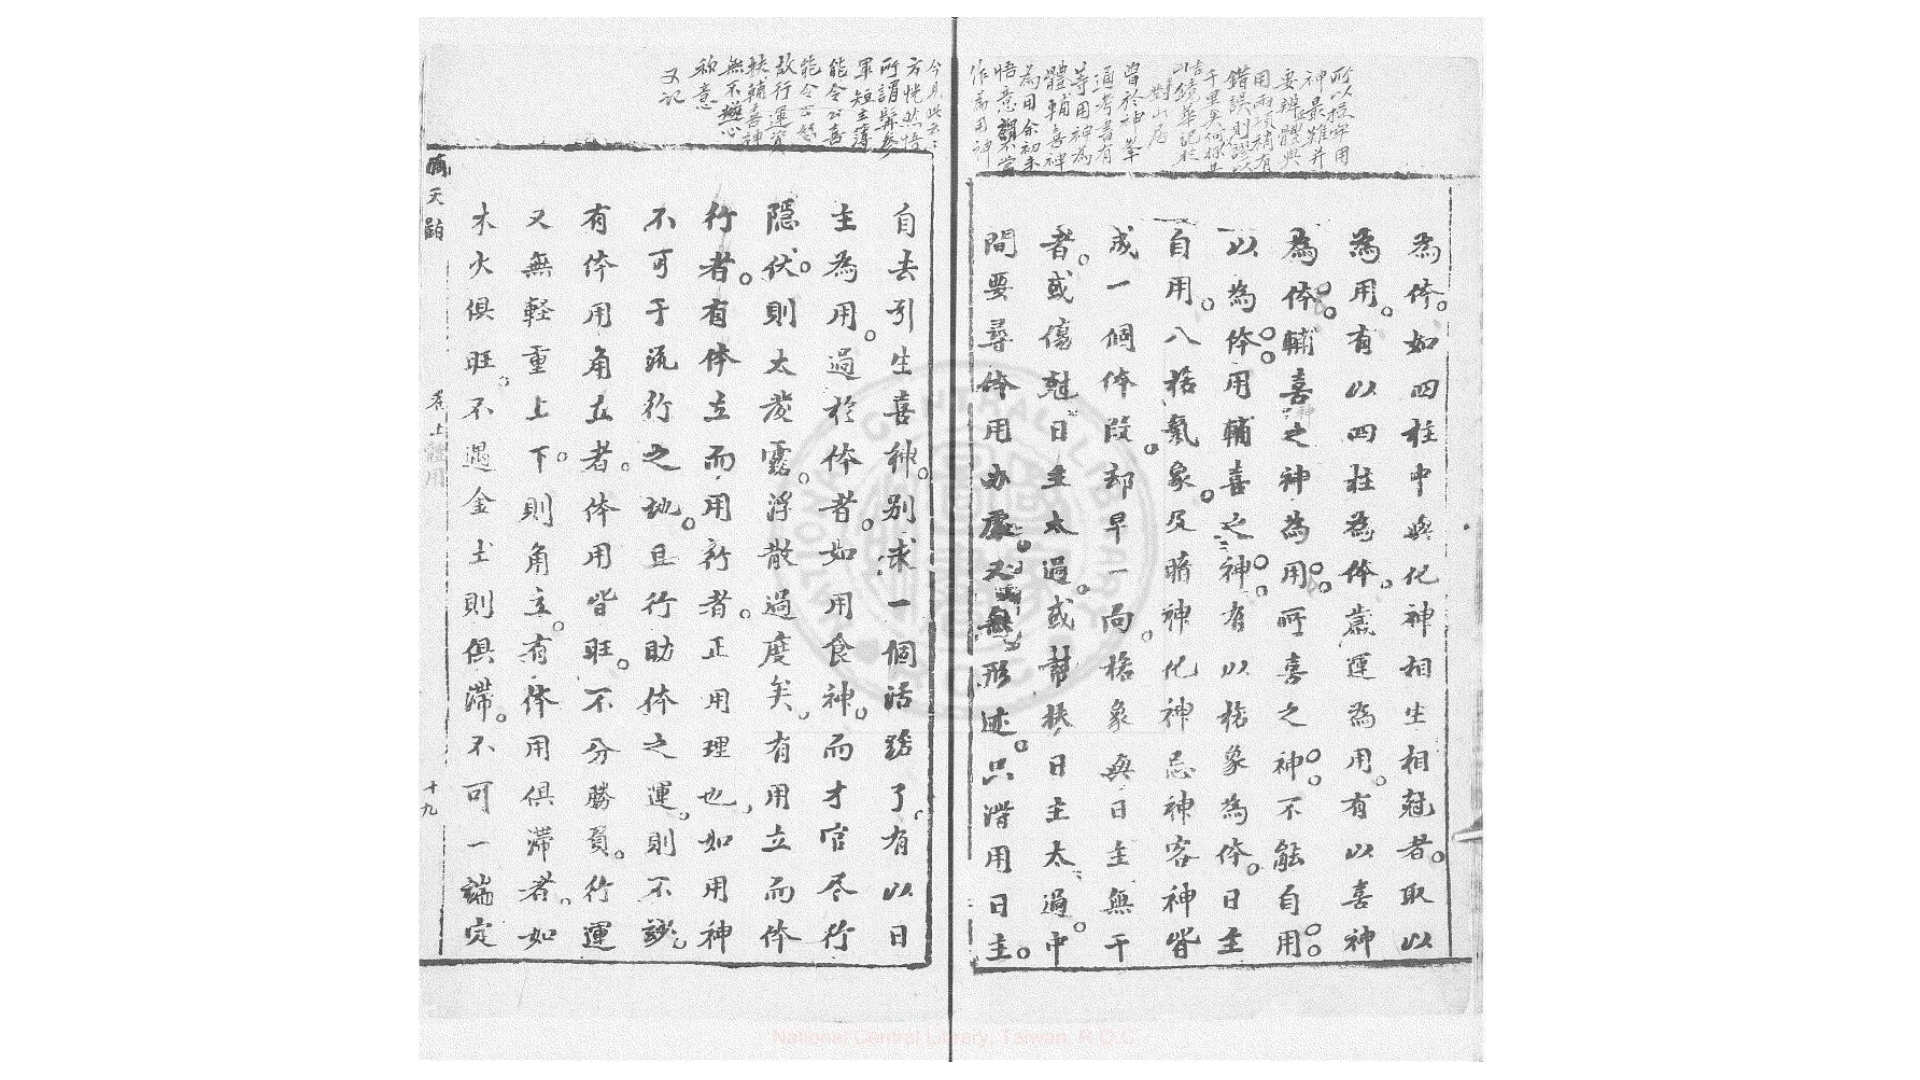 神最難并
要辨體與
用兩項稍有
錯誤則謬以
對山居
曾於神峯
通考書有
等用神為
體輔喜神
為用余初未
作為用神
為体。如四柱中與化神相生相尅者。取以
為用。有以四柱為体。歲運為用。有以喜神
為体。輔喜之神為用。所喜之神。不能自用。
以為体。用輔喜之神。有以格象為体。日主
自用。八格氣象。及暗神化神忌神客神皆
成一個体段。却早一向。格象與日主無干
者。或傷尅日主太過。或幇扶日主太過。中
間要尋体用办處。又無形迹。只用日主。
今見此
方恍然悟
所謂髯參
軍短主薄
能令公喜
能令公怒
故行運資
扶輔喜神
無不心
称意
又記
自去引生喜神。別求一個活路了。有以日
主為用。過於体者。如用食神。而才官尽行
隱伏。則太發露。浮散過度矣。有用立而体
行者。有体立而用行者。正用理也。如用神
不可于流行之地。且行助体之運。則不妙。
有体用角立者。体用皆旺。不分勝負。行運
又無軽重上下。則角立。有体用俱滯者。如
木火俱旺。不遇金土則俱滯。不可一端定
滴天髓 卷上 體用 十九
National Central Library, Taiwan, R.O.C